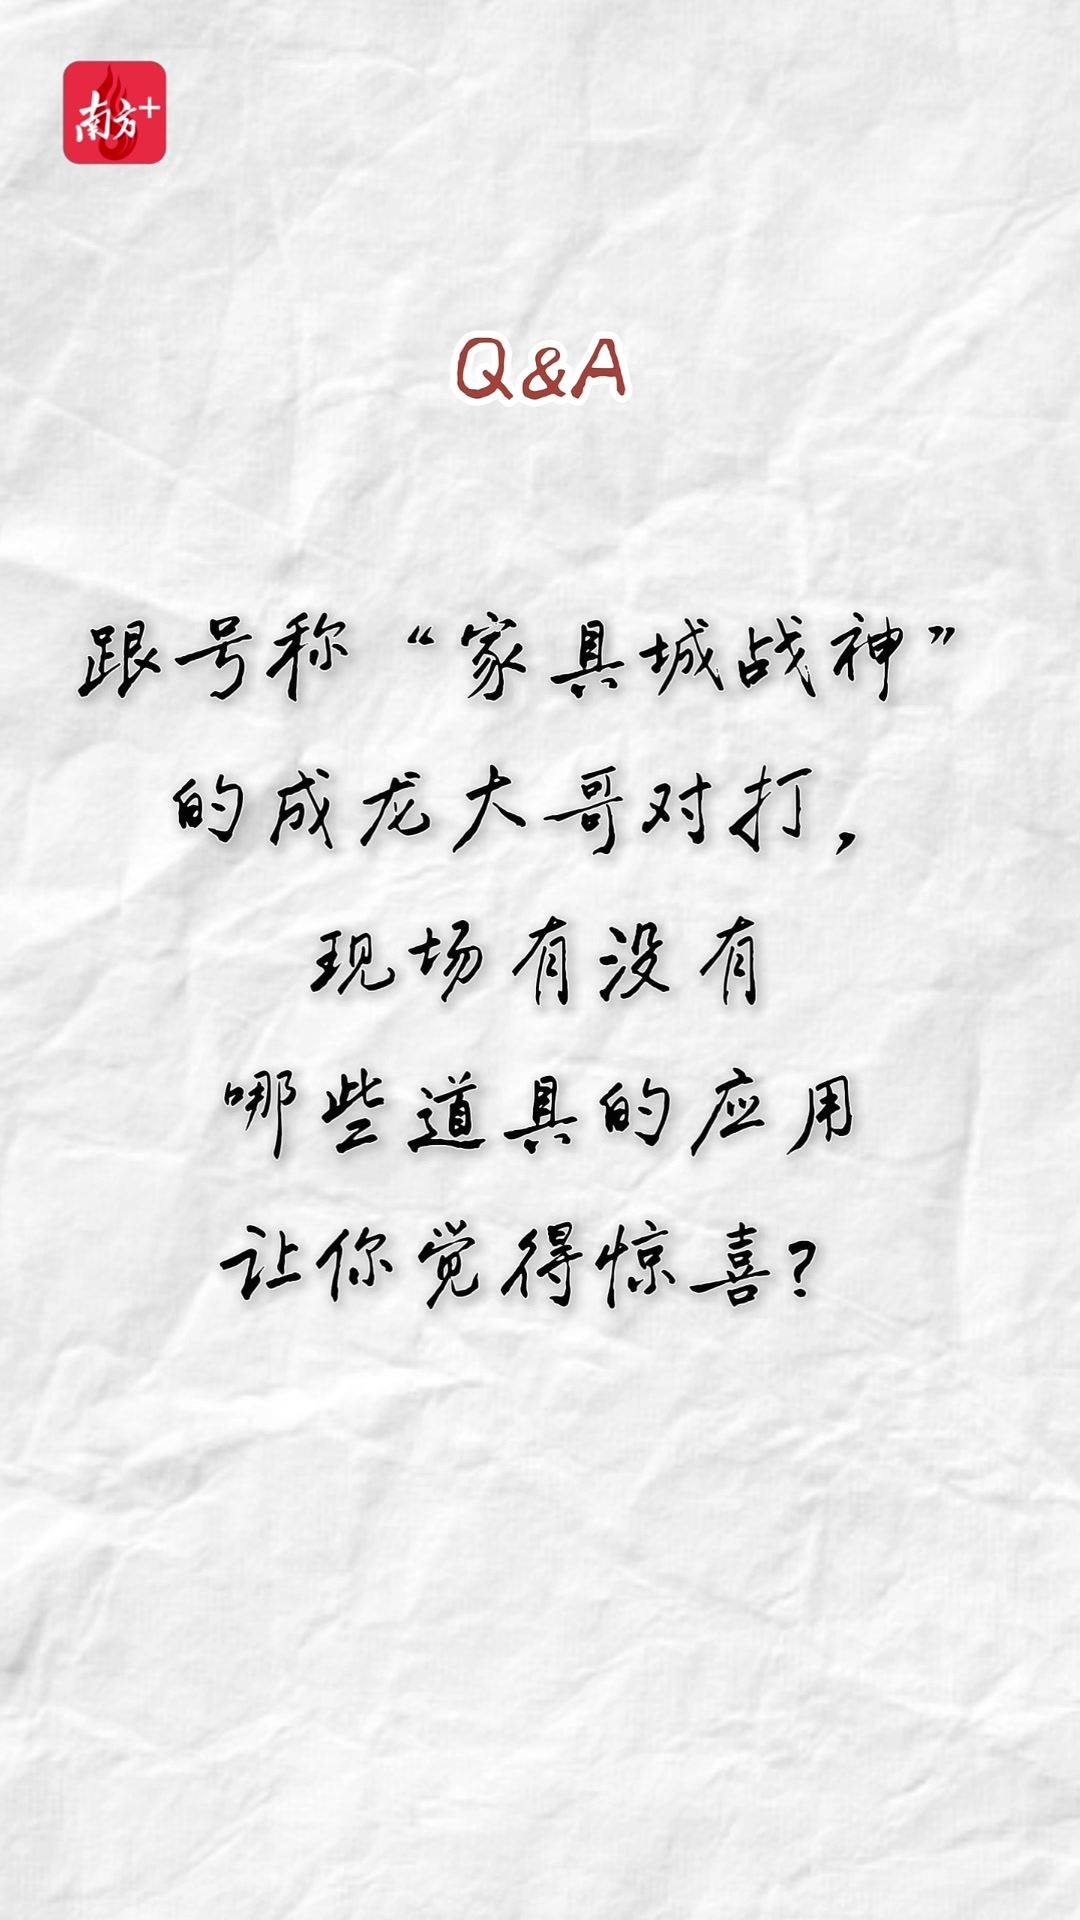 南方+
Q&A
跟号称“家具城战神”
的成龙大哥对打，
现场有没有
哪些道具的应用
让你觉得惊喜？